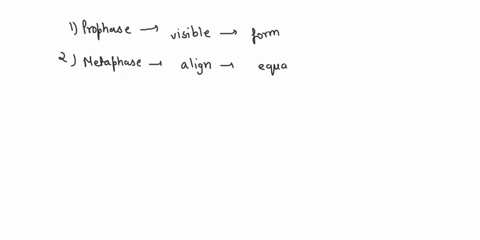 1) Prophase → visible → form
2) Metaphase → align → equa